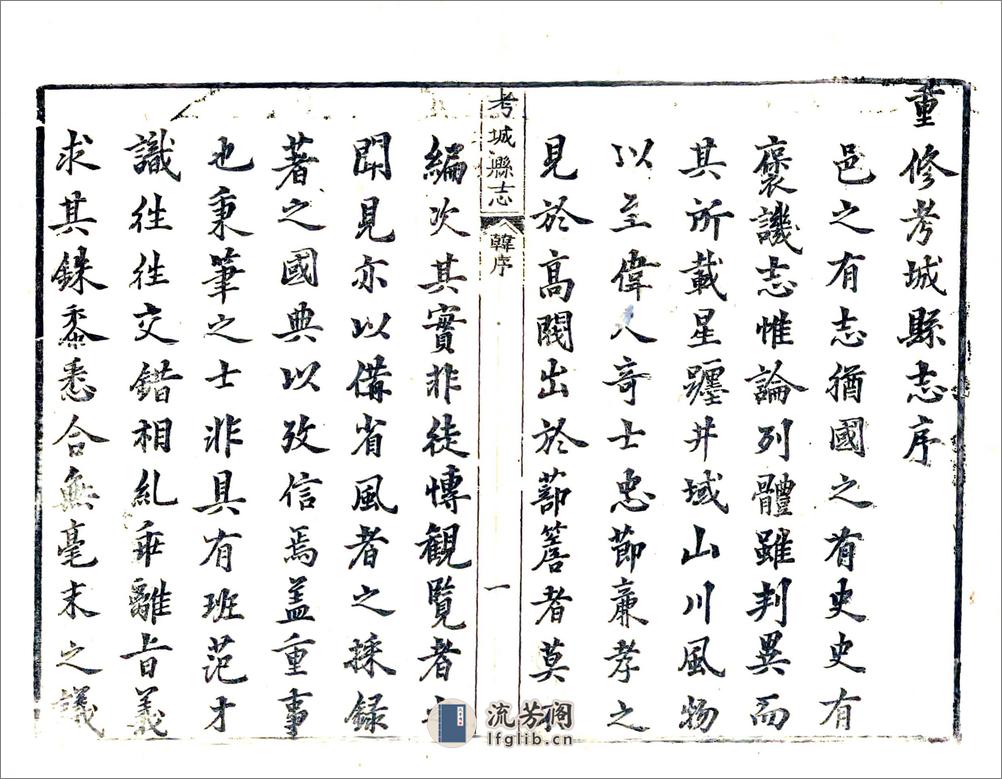 重修考城縣志序
邑之有志猶國之有史史有
褒譏志惟論列體雖判異而
其所載星躔井域山川風物
以至偉人奇士忠節亷孝之
見於高閥出於蔀簷者莫
考城縣志 韓序 一
編次其實非徒慱觀覽者
聞見亦以備省風者之採録
著之國典以攷信焉盖重事
也秉筆之士非具有班范才
識徃徃交錯相乣乖離旨義
求其銖黍悉合無毫末之議
流芳阁
lfglib.cn